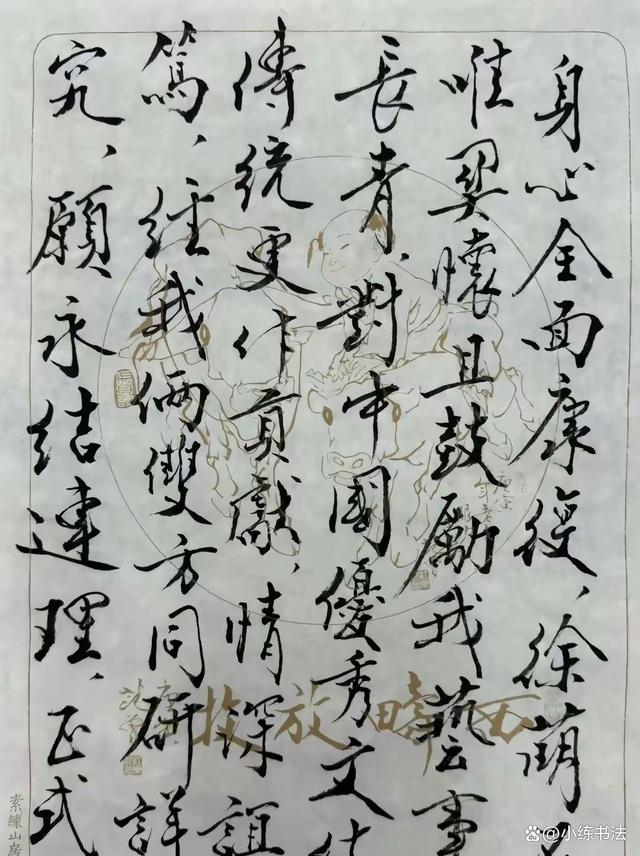 身心全面康复、徐萌
唯契懷且鼓勵我藝事
長青，對中國優秀文化
傳統更作貢獻，情深誼
篤，經我倆雙方同研詳
究，願永結連理，正式
西疇放牧
沈
素練山房
小练书法